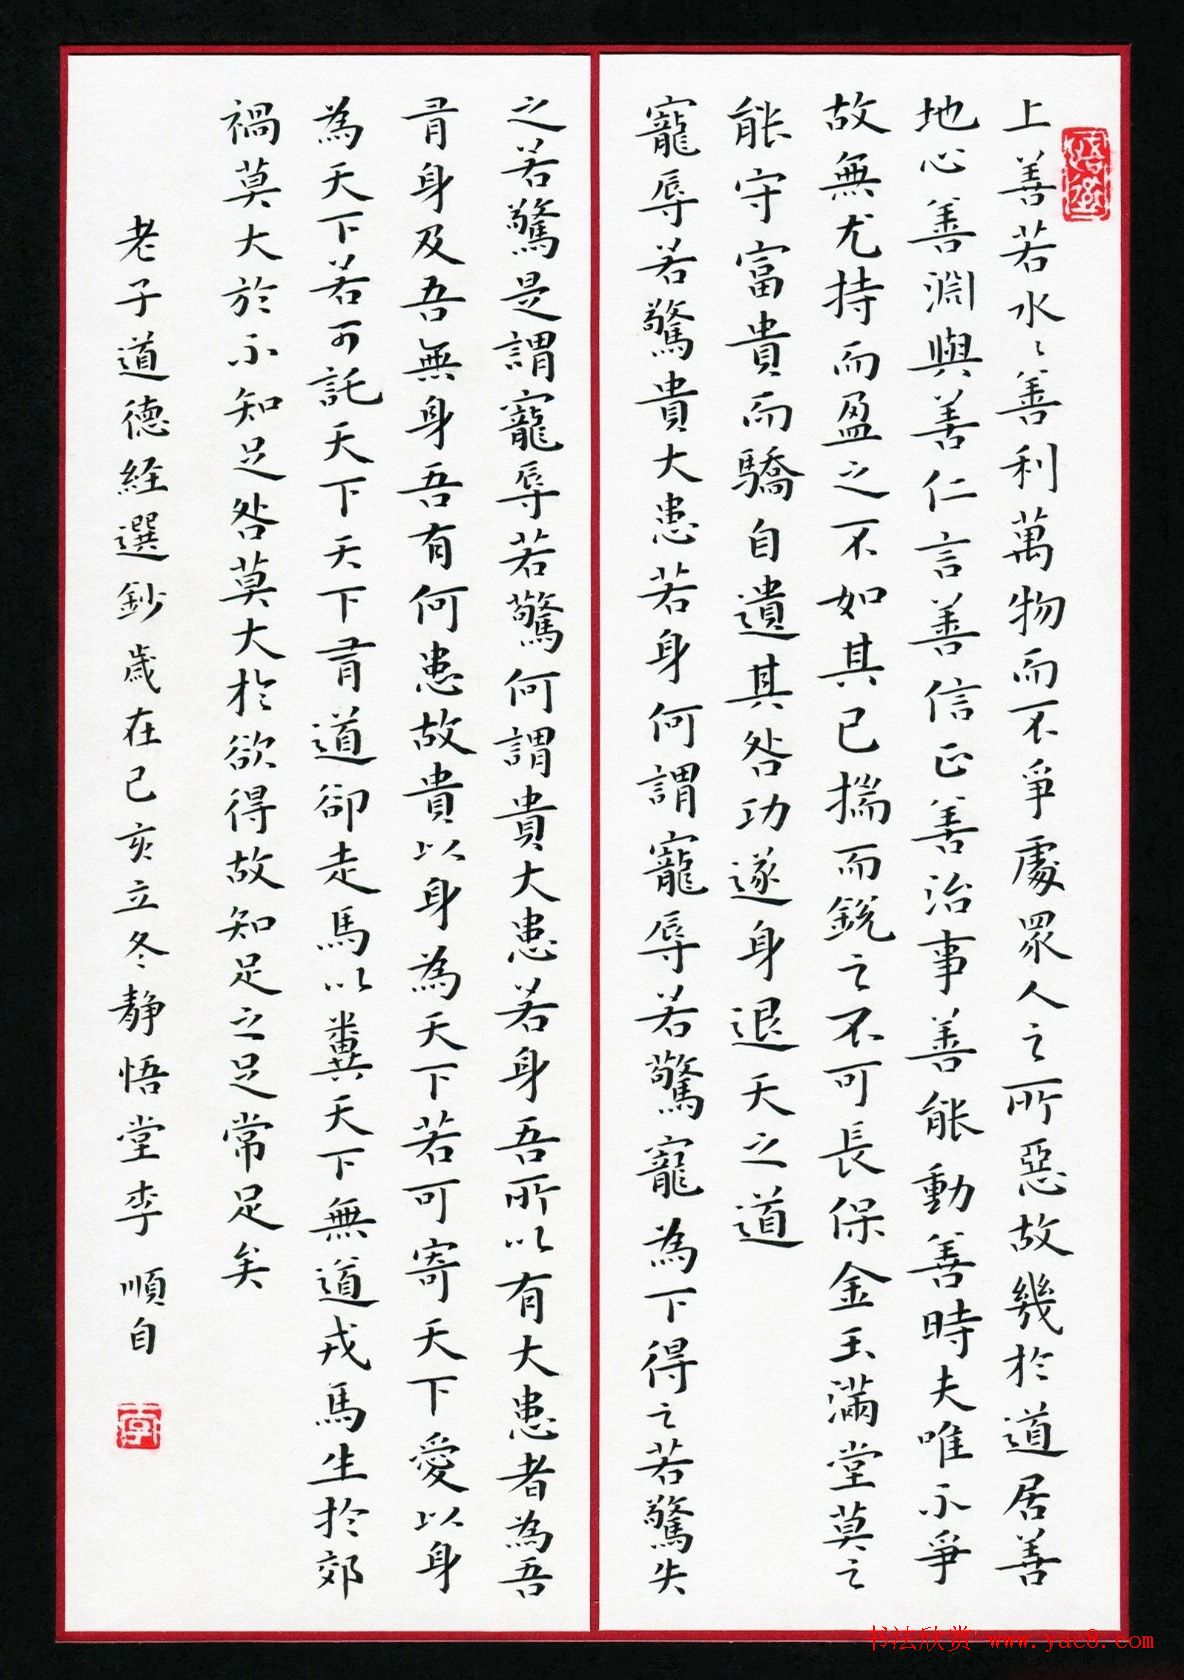 上善若水〻善利萬物而不爭處眾人之所惡故幾於道居善
地心善淵與善仁言善信正善治事善能動善時夫唯不爭
故無尤持而盈之不如其已揣而銳之不可長保金玉滿堂莫之
能守富貴而驕自遺其咎功遂身退天之道
寵辱若驚貴大患若身何謂寵辱若驚寵為下得之若驚失
之若驚是謂寵辱若驚何謂貴大患若身吾所以有大患者為吾
有身及吾無身吾有何患故貴以身為天下若可寄天下愛以身
為天下若可託天下天下有道卻走馬以糞天下無道戎馬生於郊
禍莫大於不知足咎莫大於欲得故知足之足常足矣
老子道德経選鈔歲在己亥立冬靜悟堂李順自
李
书法欣赏 www.yac8.com